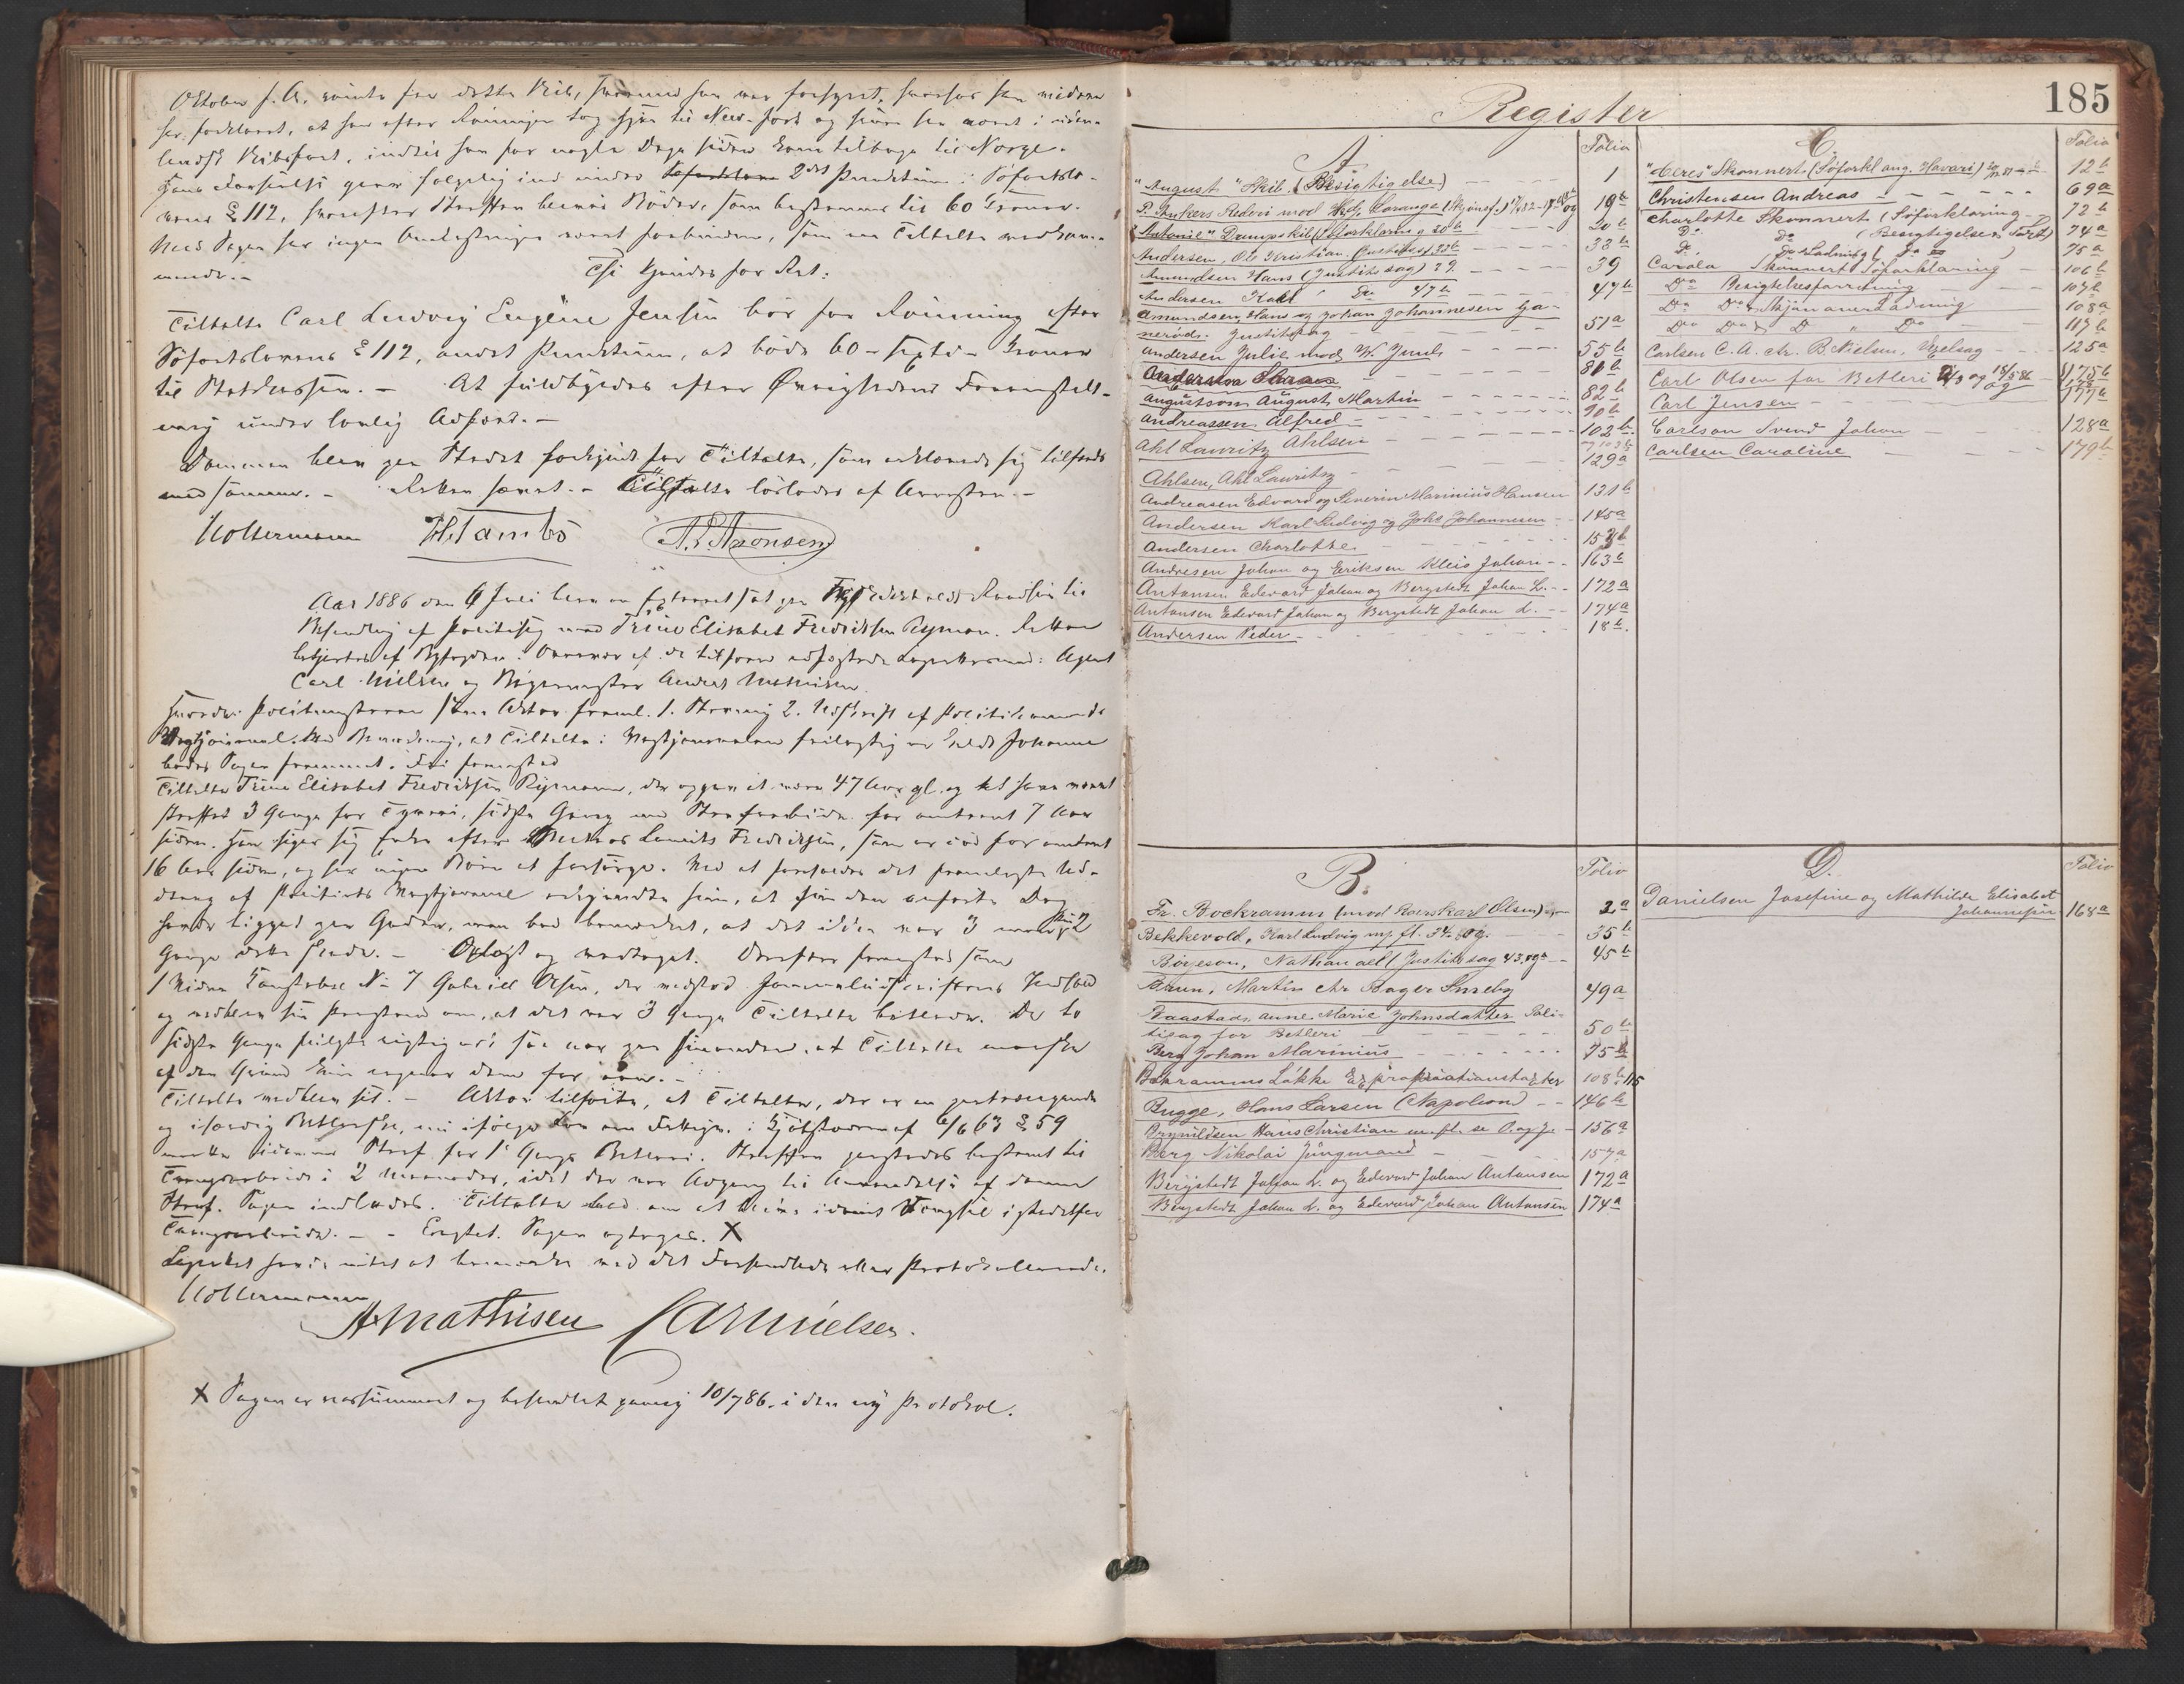 Oktober f. A. rømte fra dette Skib, hvormed han var forhyret, hvorhos han videre
har forklaret, at han efter Rømningen tog Hyre til New-York og siden har været i uden-
landsk Skibsfart, indtil han for nogle Dage siden kom tilbage til Norge.
Hans Forseelse gaar følgelig ind under 2det Punktum i Søfartslo-
vens § 112, hvorefter Straffen bliver Bøder, som bestemmes til 60 Kroner.
Med Sagen har ingen Omkostninger været forbunden, som er Tiltalte vedkom-
mende.-
Thi kjendes for Ret:
Tiltalte Carl Ludvig Eugène Jensen bør for Rømning efter
Søfartslovens § 112, andet Punktum, at bøde 60 - sexti - Kroner
til Statskassen. - At fuldbyrdes efter Øvrighedens Foranstalt-
ning under lovlig Adfærd. -
Dommen blev paa Stedet forkyndt for Tiltalte, som erklærede sig tilfreds
med samme. - Retten hævet. - Tiltalte løslades af Arresten. -
Holtermann H. Tambs A. Aronsen
Aar 1886 den 6 Juli blev en Extraret sat paa
Behandling af Politisag mod Trine Elisabet Fredriksen Ryman. Retten
betjentes af Byfogden i Overvær af de tilforn edfæstede Lagrettesmænd: Agent
Carl Nielsen og Bagermester Anders Mathisen.
Hvorda: Politimesteren som Aktor freml. 1. Stevning 2. Udskrift af Politikammerets
Vagtjournal. Med Bemærkning, at Tiltalte i Vagtjournalen feilagtig er kaldt Johanne
bedes Sagen fremmet. Fri fremstod
Tiltalte Trine Elisabet Fredriksen Rymann, der opgav at være 47 Aar gl. og at have været
straffet 3 Gange for Tyveri, sidste Gang med Strafarbeide for omtrent 7 Aar
siden. Hun siger sig Enke efter Lauritz Fredriksen, som er død for omtrent
16 Aar siden, og har ingen Børn at forsørge. Ved at foreholdes det fremlagte Ud-
drag af Politiets Vagtjournal erkjendte hun, at hun den anførte Dag
havde tigget paa Gaden, men bad bemærket, at det ikke var 3 men kun 2
Gange dette skede. - Oplæst og vedtaget. Derefter fremstod som
1 Vidne Konstabel No 7 Gabriel Olsen, der
og vedblev sin Paastand om, at det var 3 Gange Tiltalte betlede. De to
sidste Gange
af den Grund
Tiltalte vedblev sit. - Aktor tilførte, at Tiltalte, der er en
og ihærdig Betlerske, nu ifølge Lov om Fattigv. i Kjøbstæderne af 6/6 63 § 59
maatte idømmes Straf for 1e Gangs Betleri. Straffen paastodes bestemt til
Tvangsarbeide i 2 Maaneder, idet der var Adgang til Anvendelse af denne
Straf. Sagen indlades. Tiltalte bad om at blive idømt Fængsel istedetfor
Tvangsarbeide. - - Sagen optoges. X
Lagretet havde intet at bemærke ved det Forhandlede eller Protokollerede.
Holtermann
A Mathisen Carl Nielsen.
X Sagen er og behandlet paany 10/7 86. i den ny Protokol.
185
Register
A
Folio
"August" Skib. (Besigtigelse) 1
P. Ankers Rederi mod H. G. Lorange 19b
"Antonie" Dampskib (Søforklaring 20b 20b
Andersen, Ole Kristian, (Justitss.) 33b 33b
Amundsen Hans (Justitssag) 39. 39
Andersen Karl " Do 47b 47b
Amundsen, Hans og Johan Johannesen Ga-
nerød. Justitssag 51a
Andersen Julie mod W. Juul 55b
81b
Augustson August Martin 82b
Andreassen Alfred 90b
Ahl Lauritz Ahlsen 102b. og 103b
129a
Ahlsen, Ahl Lauritz
Andreasen Edvard og Severin Marinius Hansen 131b
Andersen Karl Ludvig og Johs Johannesen 145a
Andersen Charlotte 153b
Andresen Johan og Eriksen Kleis Johan 163b
Antonsen Edevard Johan og Bergstedt Johan L. 172a
Antonsen Edevard Johan og Bergstedt Johan L. 174a
Andersen Peder 18b.
C.
Folio
"Ceres" Skonnert. (Søforkl ang. Havari) 12b
Christensen Andreas 69a
Charlotte Skonnert (Søforklaring 72b
Do Do (Besigtigelse 74a
Do Do Ladning ( Do ) 75a
Carola Skonnert Søforklaring 106b
Do Besigtelsesforretning 107b
Do Do Skjøn over Ladning 108a
Do Do Do " Do 113b
Carlsen C. A. ctr. B. Nielsen, Vexelsag 125a
Carl Olsen for Betleri og 18/5 86 175b og
Carl Jensen 177b
Carlson Svend Johan 128a
Carlsen Caroline 179b
B.
Folio
Fr. Bockramm (mod Roerskarl Olsen) 2a
Bekkevold, Karl Ludvig m. fl. 34. og. 35b
Börjeson, Nathanael (Justitssag 43. og 45b
Brun, Martin ctr Bager Smeby 49a
Baastad, Anne Marie Johnsdatter Poli-
tisag for Betleri 50b
Berg Johan Marinius 75b
Bokramms Løkke Expropriationstakster 108b 115
Bugge, Hans Larsen (Napoleon) 146b
Brynildsen Hans Christian m. fl. se O. og J. 156a
Berg Nikolai Jungmand 157a
Bergstedt Johan L. og Edevard Johan Antonsen 172a
Bergstedt Johan L. og Edevard Johan Antonsen 174a
D.
Folio
Danielsen Josefine og Mathilde Elisabet
Johannesen 168a